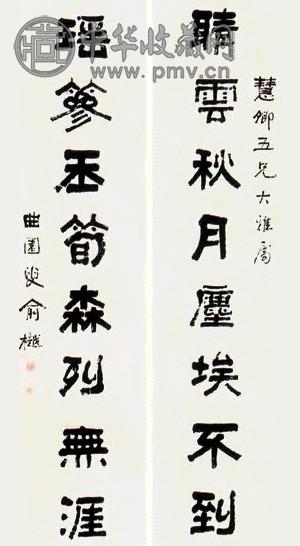 中华收藏网
www.pmv.cn
慧卿五兄大雅属
晴雲秋月塵埃不到
瑤篸玉筍森列無涯
曲園叟俞樾